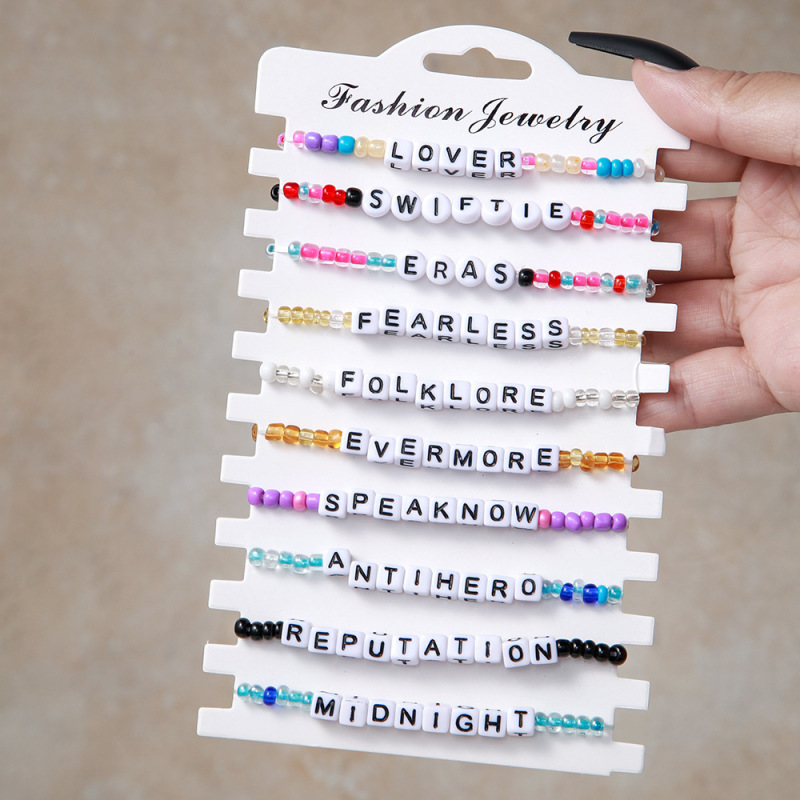 Fashion Jewelry
LOVER
SWIFTIE
ERAS
FEARLESS
FOLKLORE
EVERMORE
SPEAKNOW
ANTIHERO
REPUTATION
MIDNIGHT